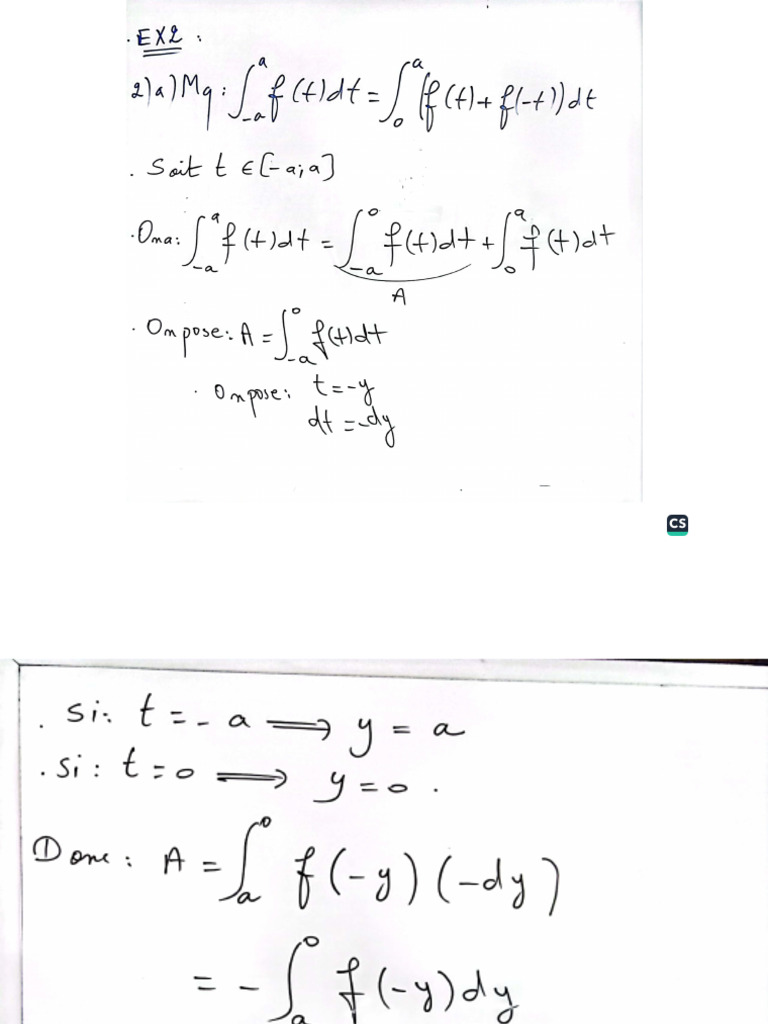 . EX2 :
2) a) Mq : ∫_{-a}^{a} f(t)dt = ∫_{0}^{a} (f(t) + f(-t)) dt
. Soit t ∈ [-a; a]
. Ona : ∫_{-a}^{a} f(t)dt = ∫_{-a}^{0} f(t)dt + ∫_{0}^{a} f(t)dt
A
. On pose : A = ∫_{-a}^{0} f(t)dt
. On pose : t = -y
dt = -dy
CS
. si : t = - a ⟹ y = a
. si : t = 0 ⟹ y = 0 .
Donc : A = ∫_{a}^{0} f(-y) (-dy)
= - ∫_{a}^{0} f(-y) dy